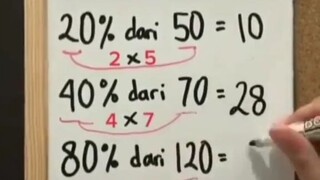 20% dari 50 = 10
2 × 5
40% dari 70 = 28
4 × 7
80% dari 120 =